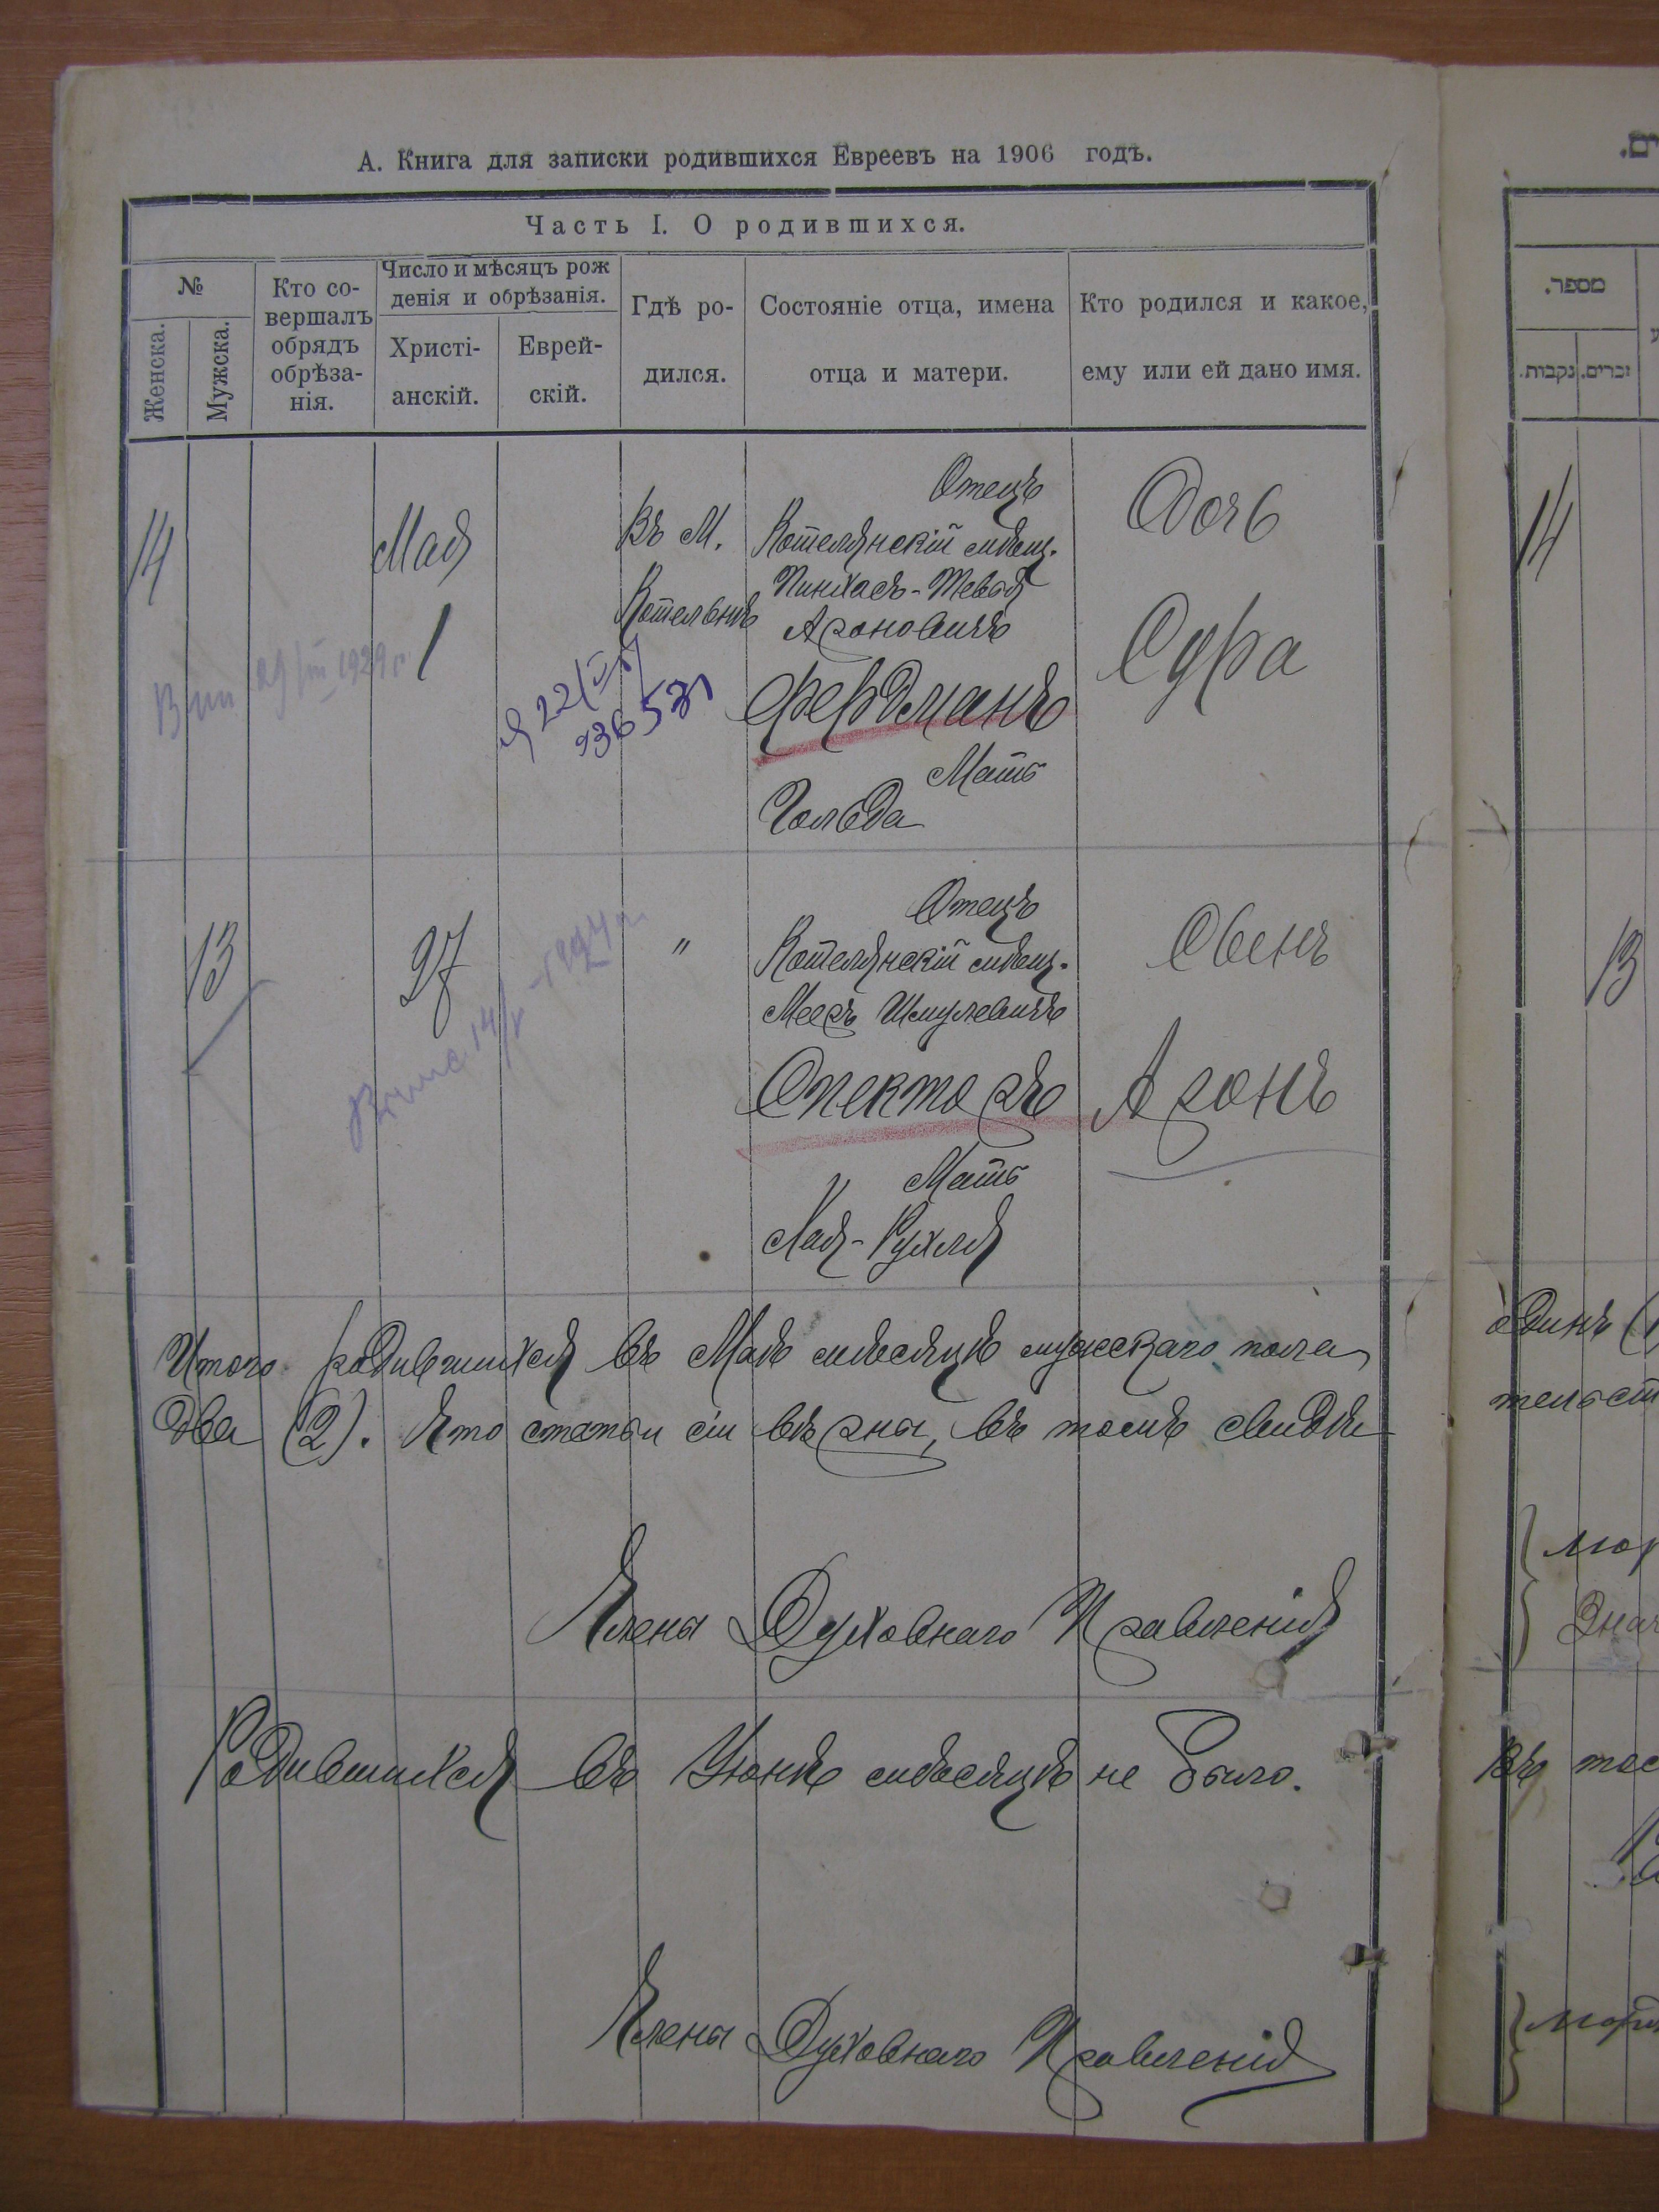 А. Книга для записки родившихся Евреевъ на 1906 годъ.
Часть I. О родившихся.
№
Женска.
Мужска.
Кто со-
вершалъ
обрядъ
обрѣза-
нія.
Число и мѣсяцъ рож
денія и обрѣзанія.
Христі-
анскій.
Еврей-
скій.
Гдѣ ро-
дился.
Состояніе отца, имена
отца и матери.
Кто родился и какое,
ему или ей дано имя.
14
Мая
1
Въ М.
Котельнѣ
Отецъ
Котелянскій мѣщ.
Пинхасъ-Тевья
Ароновичъ
Фердманъ
Мать
Гольда
Дочь
Сура
29/III 1929 г.
13
27
"
Отецъ
Котелянскій мѣщ.
Мееръ Шмулевичъ
Спекторъ
Мать
Лая-Рухля
Сынъ
Аронъ
Итого родившихся въ Маѣ мѣсяцѣ мужескаго пола
два (2). Что статьи сіи вѣрны, въ томъ свидѣ-
Члены Духовнаго Правленія
Родившихся въ Іюнѣ мѣсяцѣ не было.
Члены Духовнаго Правленія
מספר.
זכרים.
נקבות.
14
13
одинъ
Въ